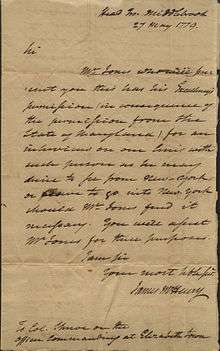 Head Qrs. Middlebrook
27 May 1779.
Sir
Mr. Jones who will pre
sent you this has his Excellency's
permission (in consequence of
the permission from the
State of Maryland) for an
interview on our lines with
such person as he may
desire to see from New-York
or to go into New York
should Mr. Jones find it
necessary. You will assist
Mr. Jones for these purposes.
I am Sir
Your most obt Ser.
James McHenry
To Col. Shreve or the
officer commanding at Elizabeth Town